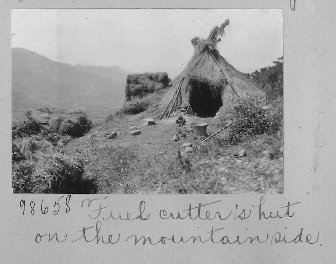 98658 Fuel cutter's hut
on the mountain side.